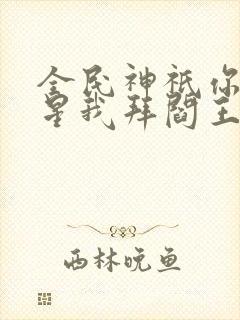 全民神祇你
星我拜阎王
西林晚鱼